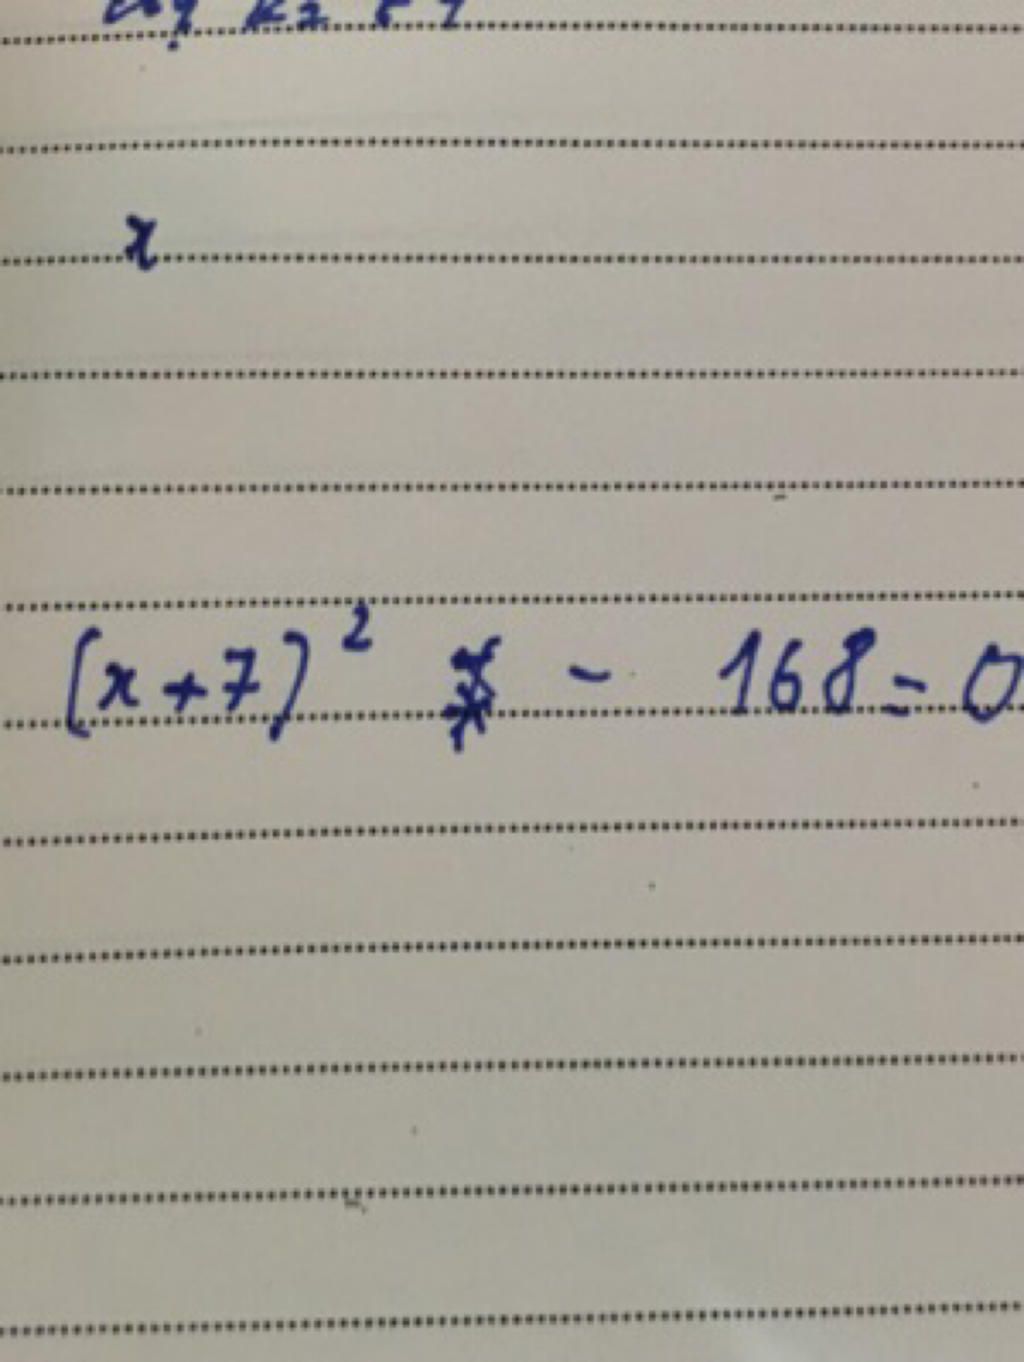 x
(x+7)² - 168=0